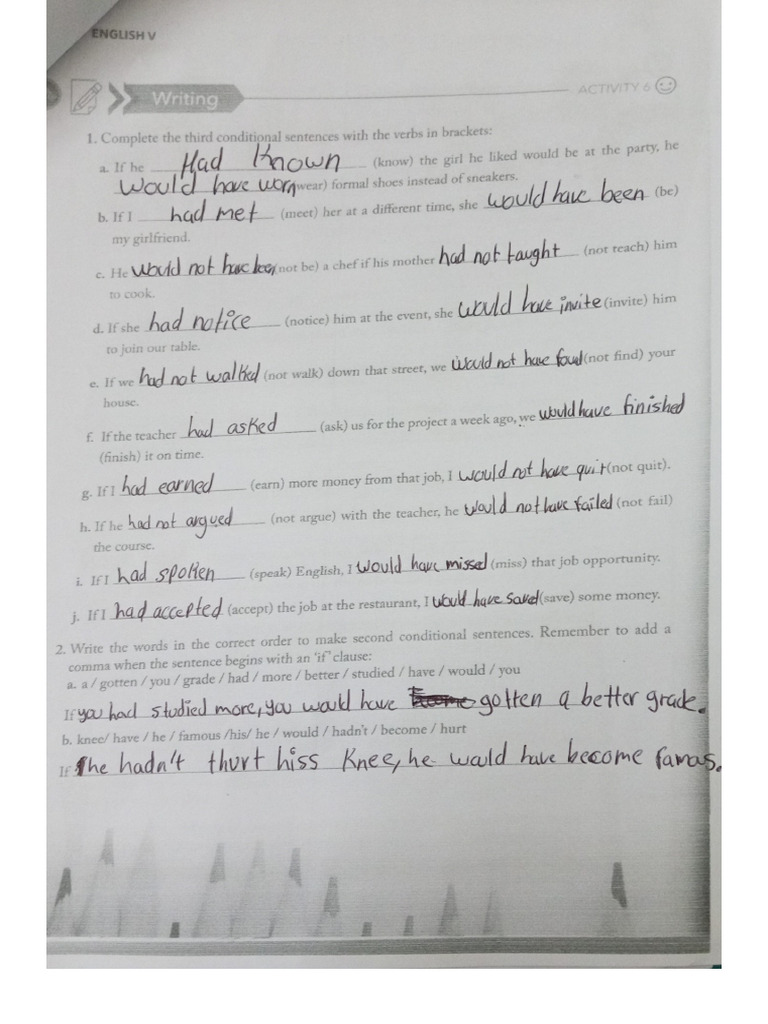 ENGLISH V
Writing
ACTIVITY 6
1. Complete the third conditional sentences with the verbs in brackets:
a. If he Had Known (know) the girl he liked would be at the party, he
Would have worn (wear) formal shoes instead of sneakers.
b. If I had met (meet) her at a different time, she would have been (be)
my girlfriend.
c. He would not have been (not be) a chef if his mother had not taught (not teach) him
to cook.
d. If she had notice (notice) him at the event, she would have invite (invite) him
to join our table.
e. If we had not walked (not walk) down that street, we would not have found (not find) your
house.
f. If the teacher had asked (ask) us for the project a week ago, we would have finished
(finish) it on time.
g. If I had earned (earn) more money from that job, I would not have quit (not quit).
h. If he had not argued (not argue) with the teacher, he would not have failed (not fail)
the course.
i. If I had spoken (speak) English, I would have missed (miss) that job opportunity.
j. If I had accepted (accept) the job at the restaurant, I would have saved (save) some money.
2. Write the words in the correct order to make second conditional sentences. Remember to add a
comma when the sentence begins with an 'if' clause:
a. a / gotten / you / grade / had / more / better / studied / have / would / you
If you had studied more, you would have gotten a better grade.
b. knee/ have / he / famous /his/ he / would / hadn't / become / hurt
If he hadn't thurt hiss Knee, he would have become famous.